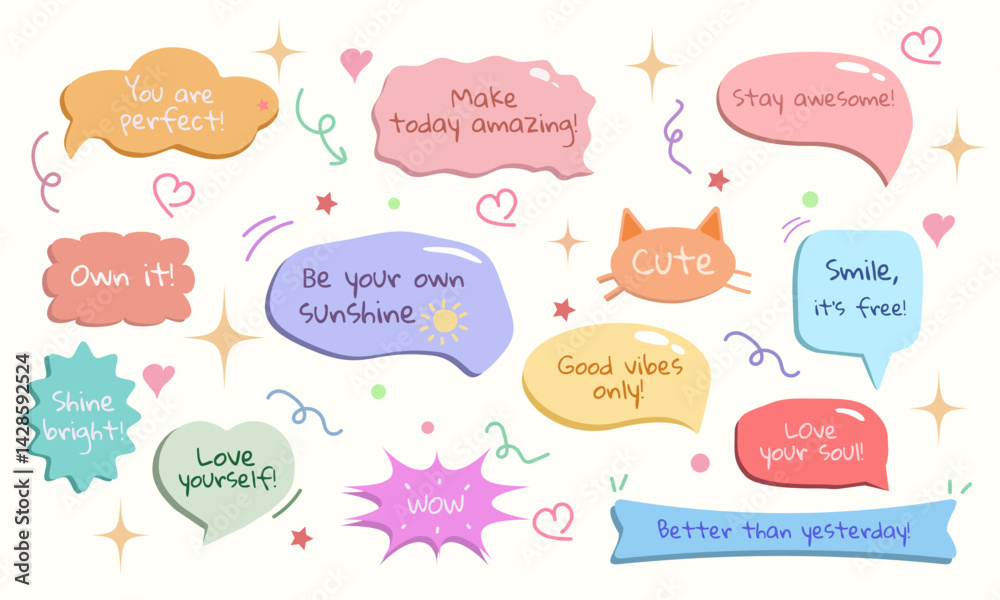 You are
perfect!
Make
today amazing!
Stay awesome!
Own it!
Be your own
sunshine
Cute
Smile,
it's free!
Good vibes
only!
Shine
bright!
Love
yourself!
WOW
Love
your soul!
Better than yesterday!
Adobe Stock | #1428592524